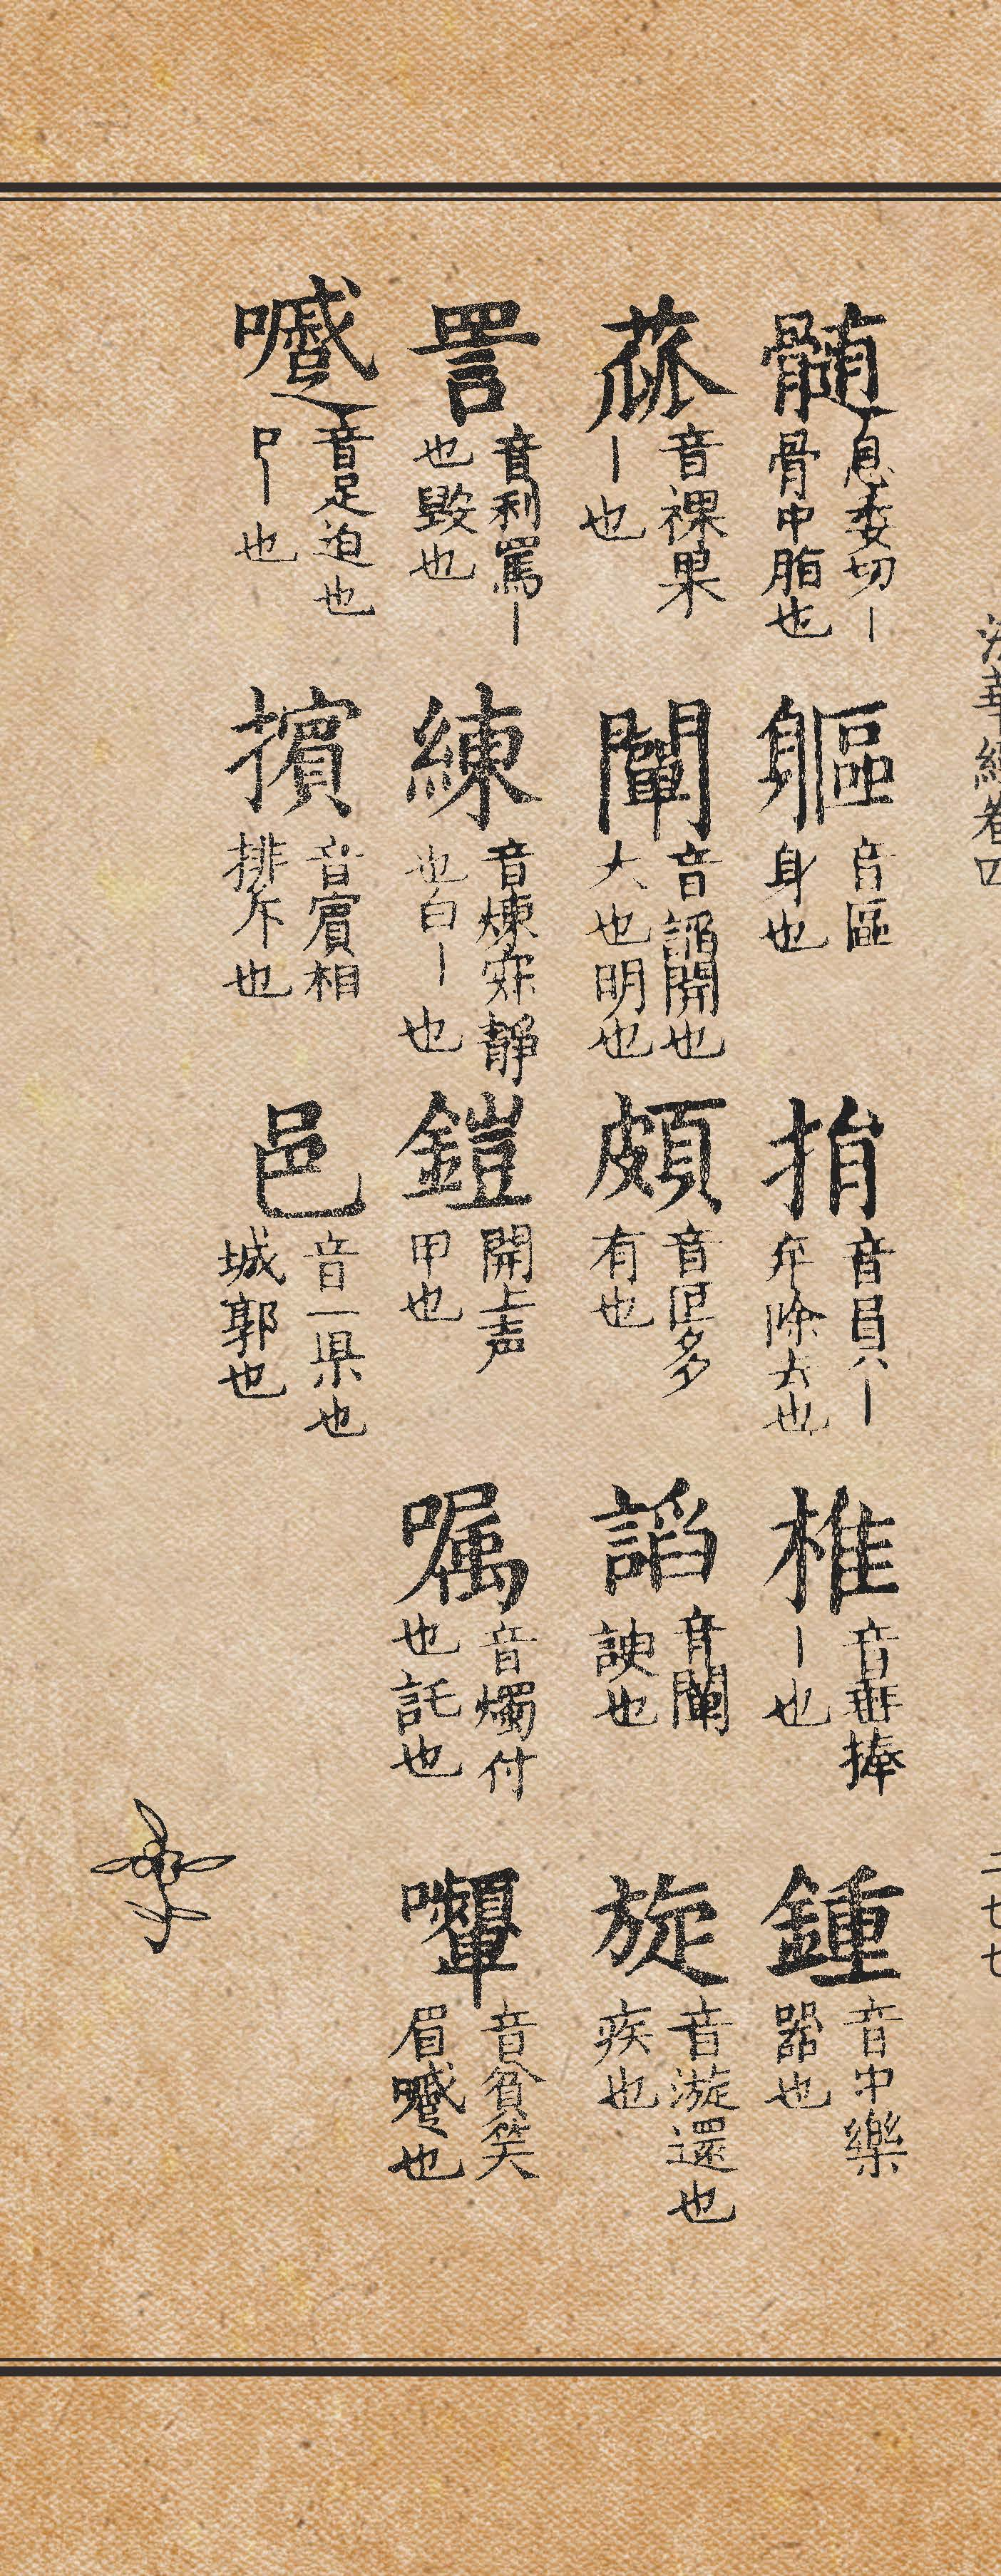 法華經卷四
二七七
髓 息委切丨骨中脂也
軀 音區身也
捐 音員丨弃除去也
椎 音垂捧丨也
鍾 音中樂器也
蓏 音裸果丨也
闡 音諂開也大也明也
頗 音叵多有也
諂 音闡諛也
旋 音漩還也疾也
詈 音利罵丨也毀也
練 音煉寂靜也白丨也
鎧 開上声甲也
嘱 音燭付也託也
嚬 音貧笑眉蹙也
音足迫也口丨也
擯 音賓相排斥也
邑 音一県也城郭也